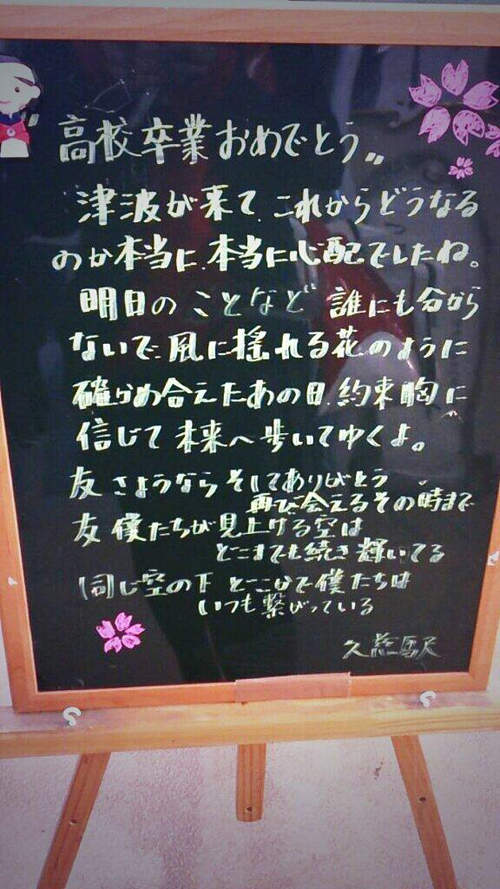 高校卒業おめでとう〃
津波が来て、これからどうなる
のか本当に、本当に心配でしたね。
明日のことなど 誰にも分から
ないで、風に揺れる花のように
確かめ合えたあの日、約束胸に
信じて 未来へ歩いてゆくよ。
友 さようなら そしてありがとう
再び会えるその時まで
友 僕たちが見上げる空は
どこまでも続き 輝いてる
同じ空の下 どこかで僕たちは
いつも繋がっている
久慈駅